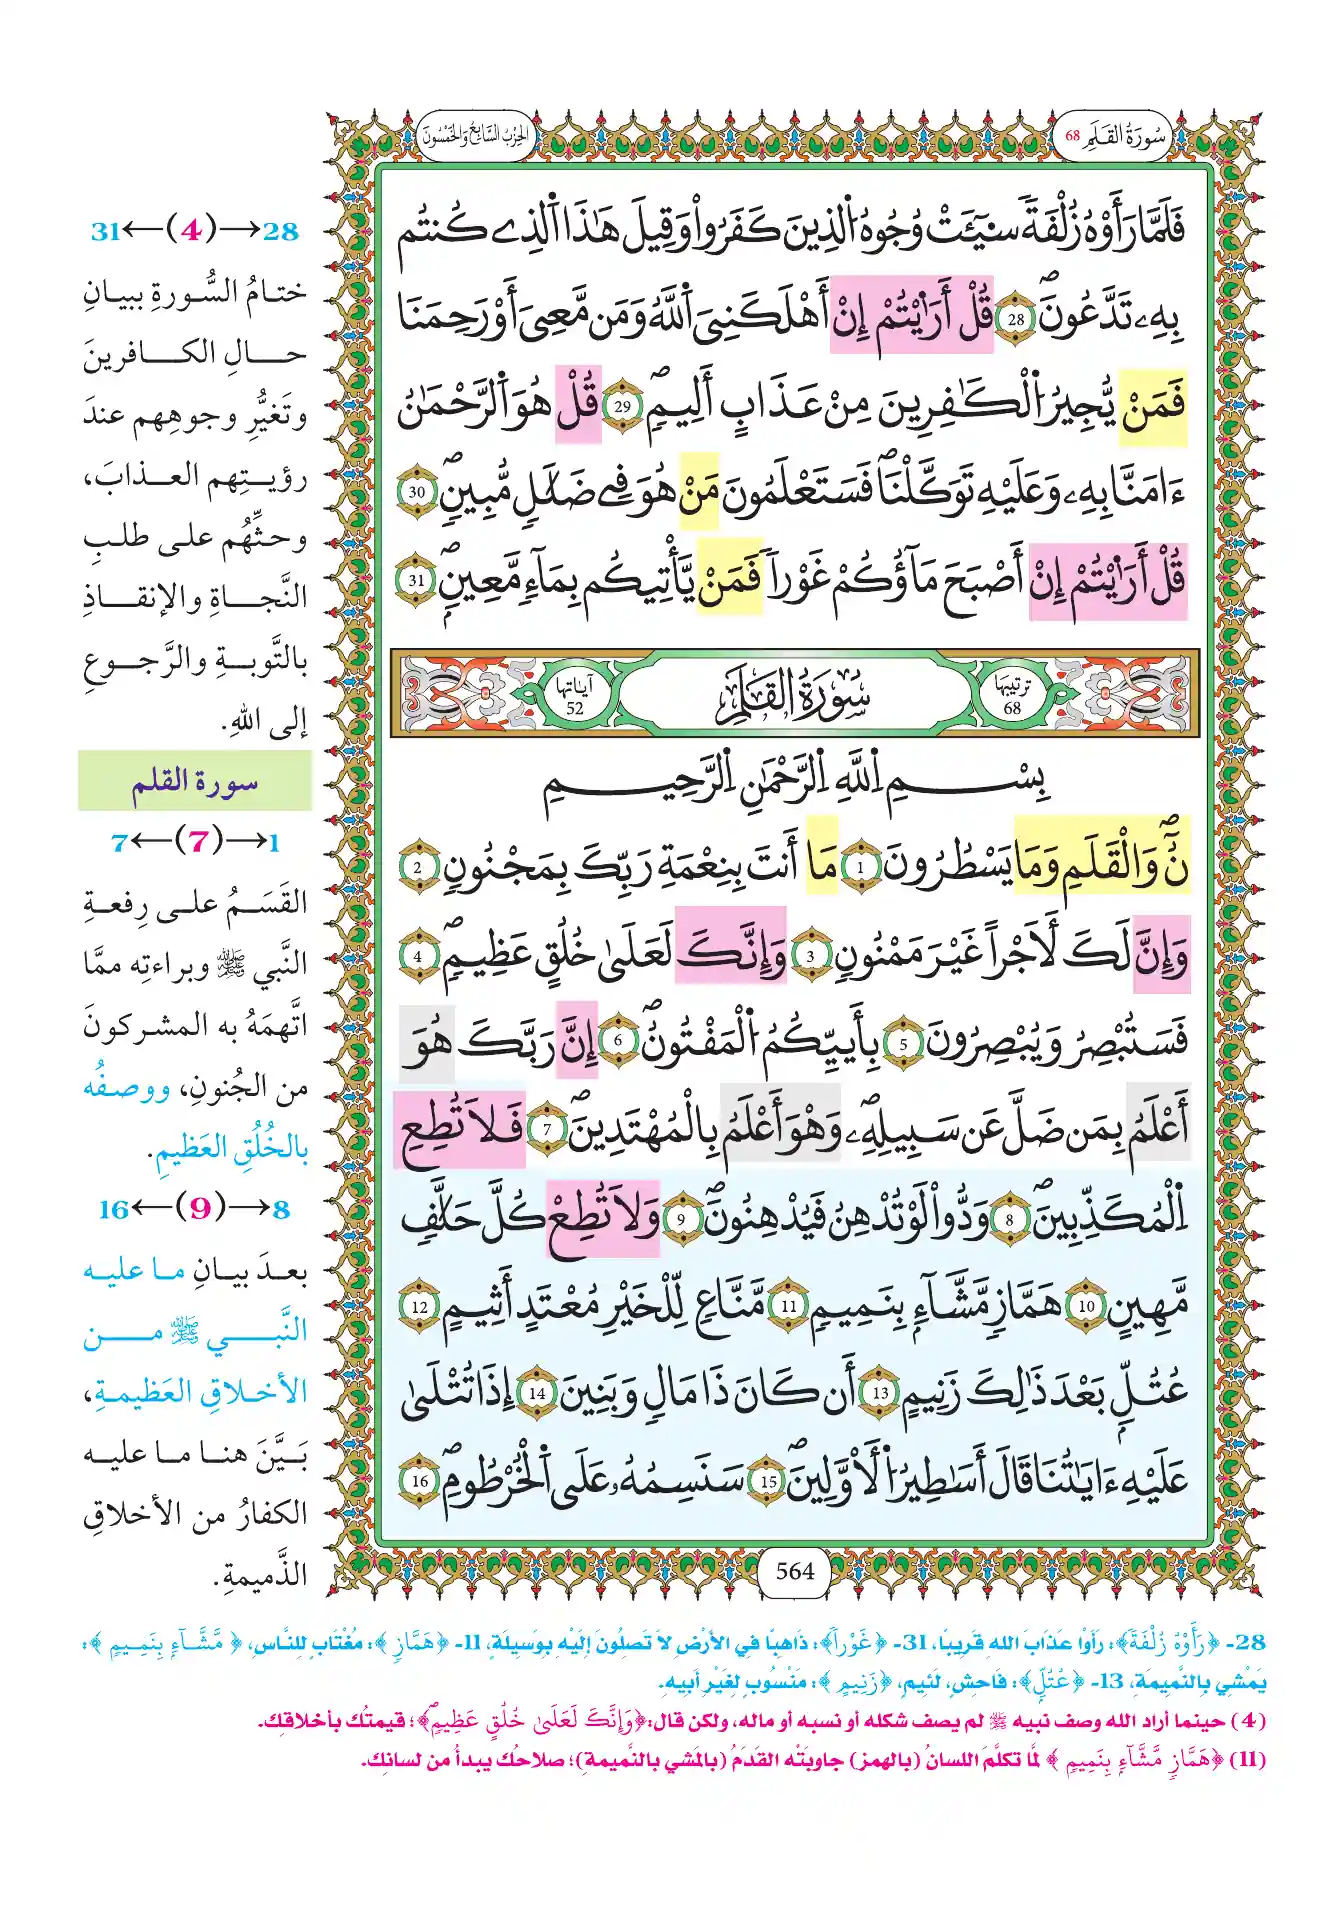 سُورَةُ القَلَمِ 68
الحِزْبُ السَّابِعُ وَالخَمْسُونَ
فَلَمَّا رَأَوْهُ زُلْفَةٗ سِيٓـَٔتْ وُجُوهُ اُ۬لذِينَ كَفَرُواْ وَقِيلَ هَٰذَا اَ۬لذِے كُنتُم
بِهِۦ تَدَّعُونَۖ 28 قُلْ أَرَٰٓيْتُمْ إِنْ أَهْلَكَنِيَ اَ۬للَّهُ وَمَن مَّعِيَ أَوْ رَحِمَنَا
فَمَنْ يُّجِيرُ اُ۬لْكَٰفِرِينَ مِنْ عَذَابٍ أَلِيمٖۖ 29 قُلْ هُوَ اَ۬لرَّحْمَٰنُ
ءَامَنَّا بِهِۦ وَعَلَيْهِ تَوَكَّلْنَاۖ فَسَتَعْلَمُونَ مَنْ هُوَ فِے ضَلَٰلٖ مُّبِينٖۖ 30
قُلْ أَرَٰٓيْتُمْ إِنْ أَصْبَحَ مَآؤُكُمْ غَوْراٗ فَمَنْ يَّأْتِيكُم بِمَآءٖ مَّعِينٖۖ 31
ترتيبها 68 سُورَةُ القَلَمِ آياتها 52
بِسْمِ اِ۬للَّهِ اِ۬لرَّحْمَٰنِ اِ۬لرَّحِيمِ
نٓۖ وَالْقَلَمِ وَمَا يَسْطُرُونَ 1 مَا أَنتَ بِنِعْمَةِ رَبِّكَ بِمَجْنُونٖ 2
وَإِنَّ لَكَ لَأَجْراً غَيْرَ مَمْنُونٖ 3 وَإِنَّكَ لَعَلَىٰ خُلُقٍ عَظِيمٖۖ 4
فَسَتُبْصِرُ وَيُبْصِرُونَ 5 بِأَييِّكُمُ اُ۬لْمَفْتُونُۖ 6 إِنَّ رَبَّكَ هُوَ
أَعْلَمُ بِمَن ضَلَّ عَن سَبِيلِهِۦۖ وَهُوَ أَعْلَمُ بِالْمُهْتَدِينَۖ 7 فَلَا تُطِعِ
اِ۬لْمُكَذِّبِينَۖ 8 وَدُّواْ لَوْ تُدْهِنُ فَيُدْهِنُونَۖ 9 وَلَا تُطِعْ كُلَّ حَلَّافٖ
مَّهِينٍ 10 هَمَّازٖ مَّشَّآءِۢ بِنَمِيمٖ 11 مَّنَّاعٖ لِّلْخَيْرِ مُعْتَدٍ أَثِيمٍ 12
عُتُلِّۢ بَعْدَ ذَٰلِكَ زَنِيمٍ 13 أَن كَانَ ذَا مَالٖ وَبَنِينَ 14 إِذَا تُتْلَىٰ
عَلَيْهِ ءَايَٰتُنَا قَالَ أَسَٰطِيرُ اُ۬لَاوَّلِينَۖ 15 سَنَسِمُهُۥ عَلَى اَ۬لْخُرْطُومِۖ 16
564
28→(4)←31
ختامُ السُّورةِ ببيانِ
حالِ الكافرينَ
وتَغيُّرِ وجوهِهم عندَ
رؤيتِهم العذابَ،
وحثِّهُم على طلبِ
النَّجاةِ والإنقاذِ
بالتَّوبةِ والرَّجوعِ
إلى اللهِ.
سورة القلم
1→(7)←7
القَسَمُ على رِفعةِ
النَّبي ﷺ وبراءتِه ممَّا
اتَّهمَهُ به المشركونَ
من الجُنونِ، ووصفُه
بالخُلُقِ العَظيمِ.
8→(9)←16
بعدَ بيانِ ما عليه
النَّبي ﷺ من
الأخلاقِ العَظيمةِ،
بَيَّنَ هنا ما عليه
الكفارُ من الأخلاقِ
الذَّميمةِ.
28- ﴿رَأَوْهُ زُلْفَةٗ﴾: رَأَوْا عَذَابَ اللهِ قَرِيبًا، 31- ﴿غَوْراٗ﴾: ذَاهِبًا فِي الأَرْضِ لَا تَصِلُونَ إِلَيْهِ بِوَسِيلَةٍ، 11- ﴿هَمَّازٖ﴾: مُغْتَابٍ لِلنَّاسِ، ﴿مَّشَّآءِۢ بِنَمِيمٖ﴾:
يَمْشِي بِالنَّمِيمَةِ، 13- ﴿عُتُلِّۢ﴾: فَاحِشٍ، لَئِيمٍ، ﴿زَنِيمٍ﴾: مَنْسُوبٍ لِغَيْرِ أَبِيهِ.
(4) حينما أراد الله وصف نبيه ﷺ لم يصف شكله أو نسبه أو ماله، ولكن قال: ﴿وَإِنَّكَ لَعَلَىٰ خُلُقٍ عَظِيمٖۖ﴾؛ قيمتُك بأخلاقِك.
(11) ﴿هَمَّازٖ مَّشَّآءِۢ بِنَمِيمٖ﴾ لمَّا تكلَّمَ اللسانُ (بالهمزِ) جاوبَتْه القَدَمُ (بالمشي بالنَّميمةِ)؛ صلاحُك يبدأُ من لسانِك.